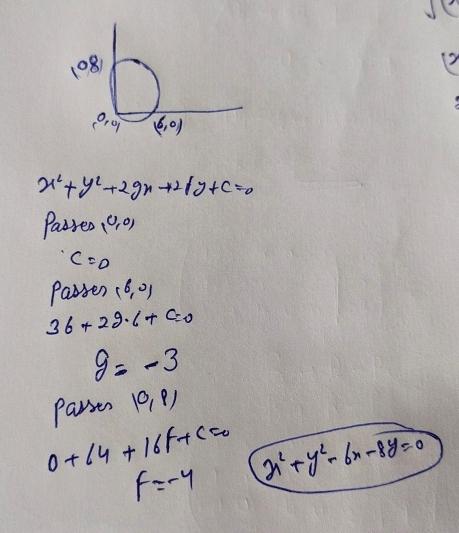 (0,8)
(0,0) (6,0)
x²+y²+2gx+2fy+c=0
Passes (0,0)
c=0
Passes (6,0)
36+2g.6+c=0
g=-3
Passes (0,8)
0+64+16f+c=0
f=-4
x²+y²-6x-8y=0